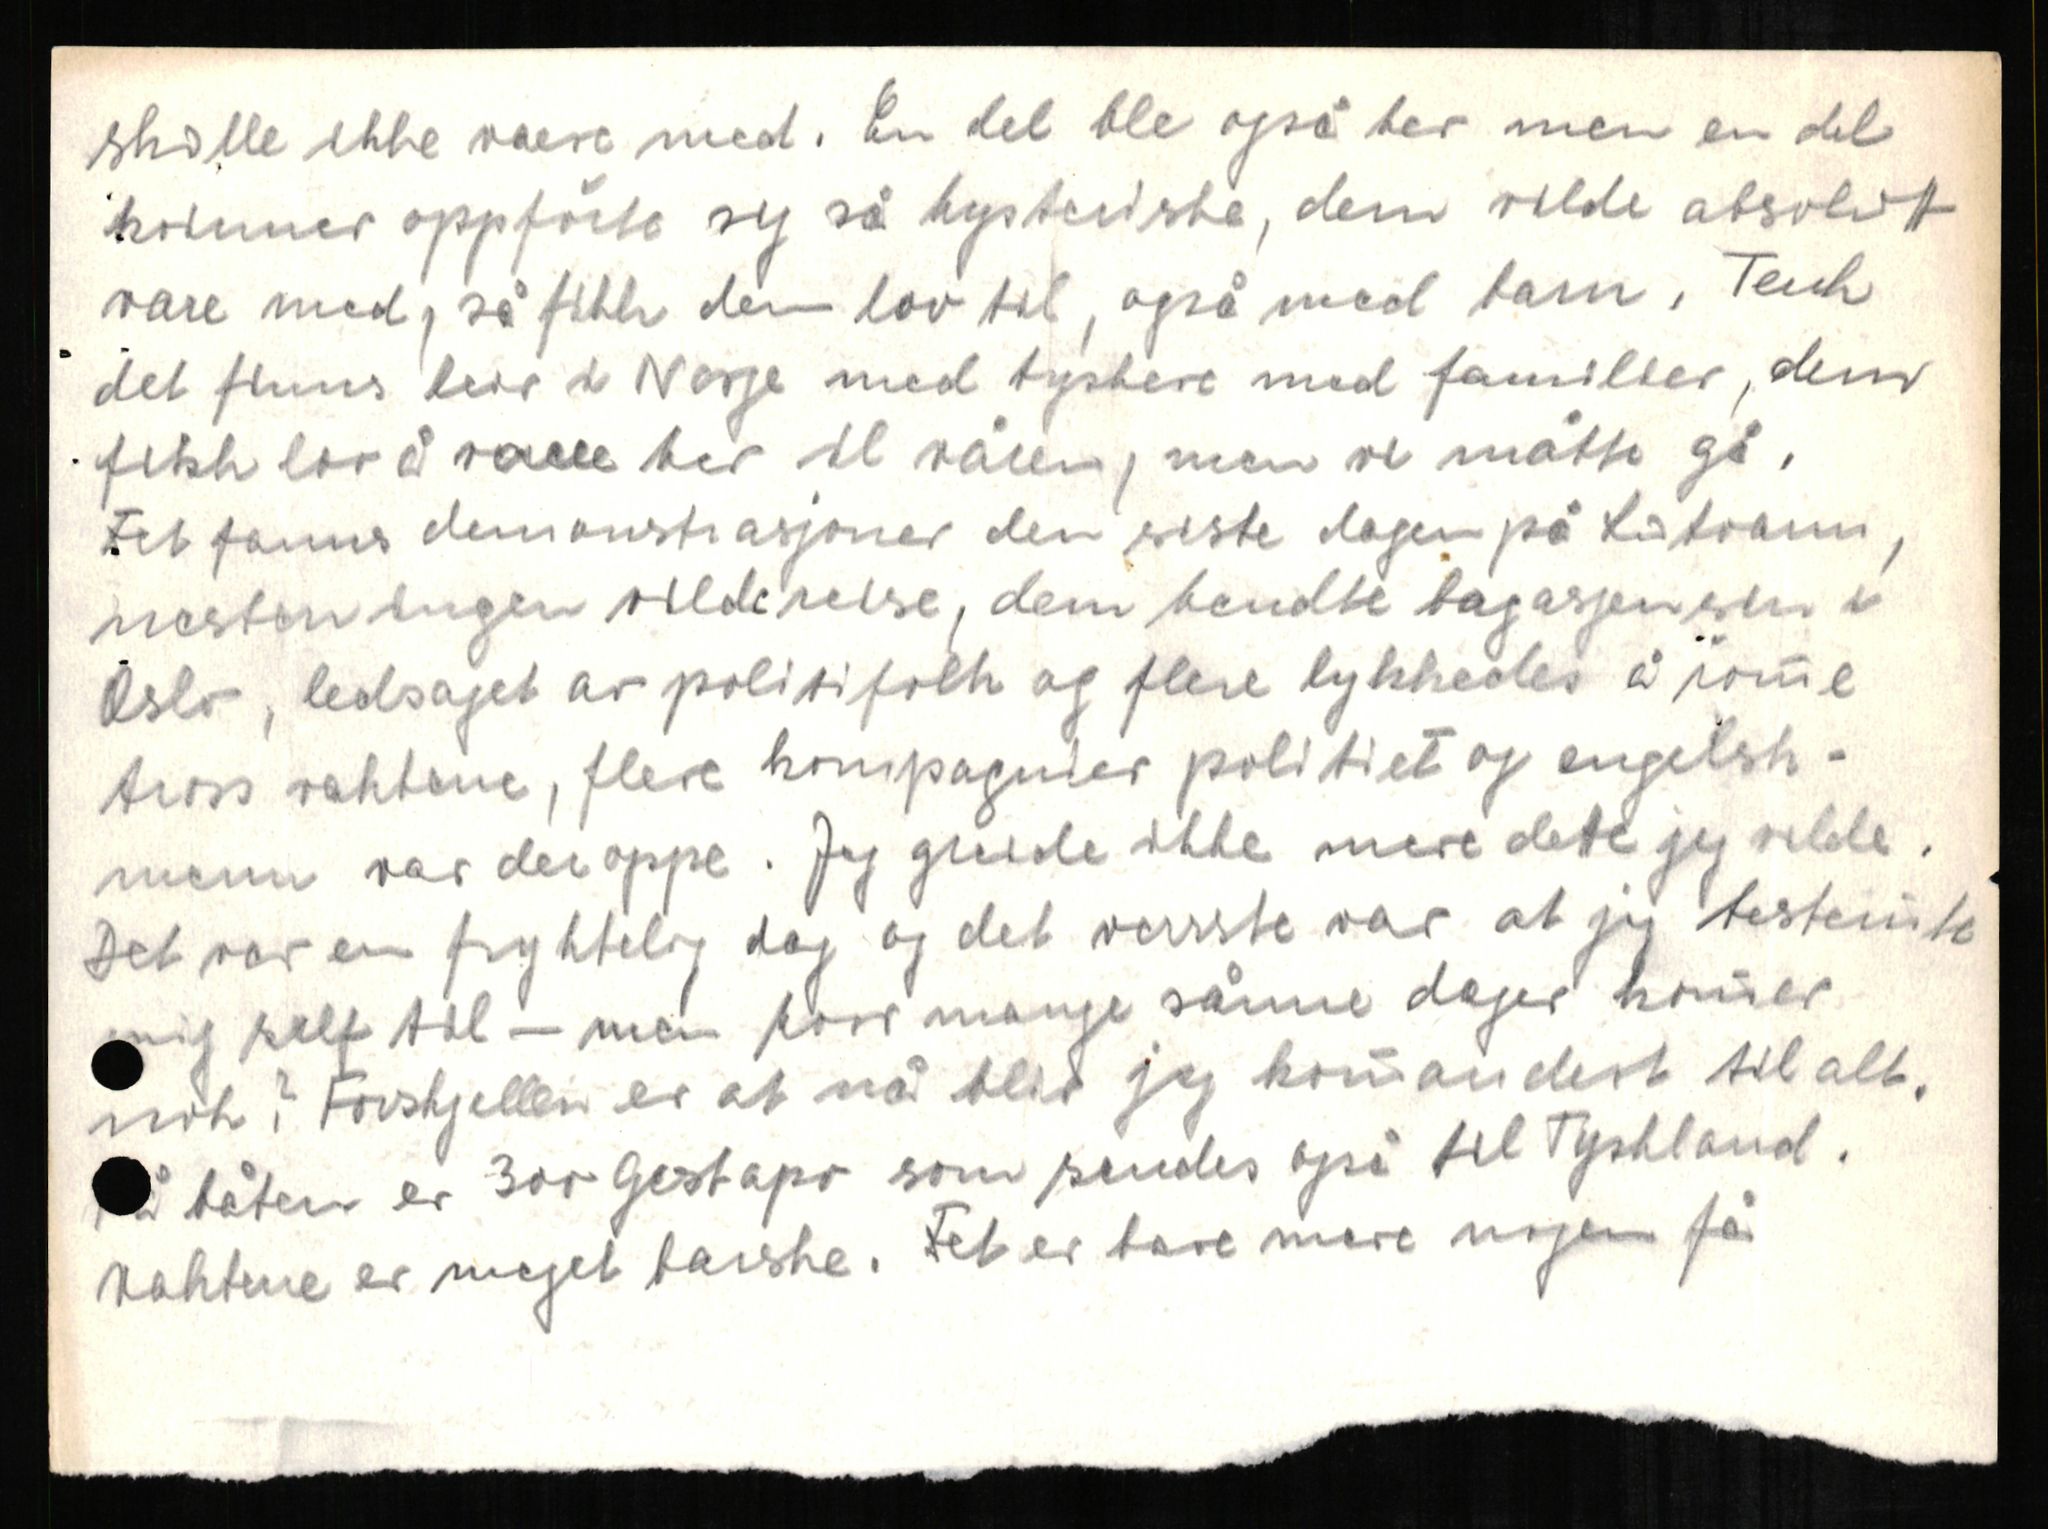 skulle ikke vaere med. En del ble også her men en del
kvinner oppförte sig så hysteriske, dem vilde absolutt
vare med, så fikk dem lov til, også med barn. Tenk
det finns leir i Norge med tyskere med familier, dem
fikk lov å vaere her til våren, men vi måtte gå.
Det fanns demonstrasjoner den siste dagen på Lutvann,
nesten ingen vilde reise, dem hendte bagasjen sin i
Oslo, ledsaget av politifolk og flere lykkedes å röm̄e
tross vaktene, flere kompagnier politiet og engelsk-
menn var der oppe. Jeg greide ikke mere dette jeg vilde.
Det var en fryktelig dag og det verste var at jeg bestem̄te
mig self til – men hvor mange sånne dager kom̄er
nok? Forskjellen er at nå blir jeg kom̄andert til alt.
På båten er 300 Gestapo som sendes også til Tyskland.
Vaktene er meget barske. Det er bare mere nogen få